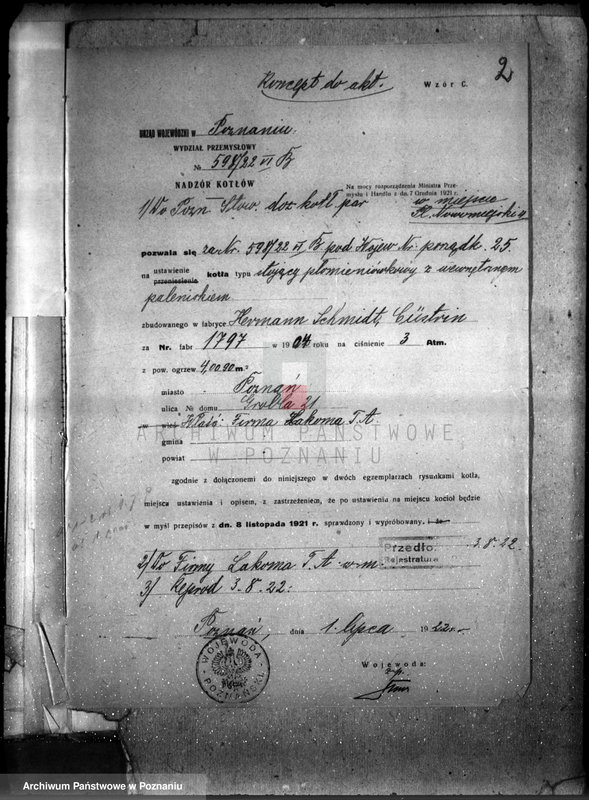 2
Koncept do akt. Wzór C.
URZĄD WOJEWÓDZKI w Poznaniu
WYDZIAŁ PRZEMYSŁOWY
№ 598/22 VI B
NADZÓR KOTŁÓW
Na mocy rozporządzenia Ministra Prze-
mysłu i Handlu z d. 7 Grudnia 1921 r.
1/ Do Pozn. Stow. doz kotł par w miejscu
Pl. Nowomiejski 4
pozwala się za Nr. 598/22 VI B pod Wojew Nr. porządk. 25
na ustawienie przeniesienie kotła typu stojący płomieniówkowy z wewnętrznem
paleniskiem
zbudowanego w fabryce Hermann Schmidt, Cüstrin
za Nr. fabr 1797 w 1904 roku na ciśnienie 3 Atm.
z pow. ogrzew. 4,00.90 m²
miasto Poznań
ulica № domu Grobla 21
wieś Właść: Firma Lakoma T.A
gmina
powiat
ARCHIWUM PAŃSTWOWE
W POZNANIU
zgodnie z dołączonemi do niniejszego w dwóch egzemplarzach rysunkami kotła,
miejsca ustawienia i opisem, z zastrzeżeniem, że po ustawieniu na miejscu kocioł będzie
w myśl przepisów z dn. 8 listopada 1921 r. sprawdzony i wypróbowany.
Przedło. 3.8.22.
Rejestratura
2/ Do Firmy Lakoma T.A w m.
3/ 3.8.22.
Poznań, dnia 1. lipca 1922 r.
Wojewoda:
WOJEWODA POZNAŃSKI
Archiwum Państwowe w Poznaniu